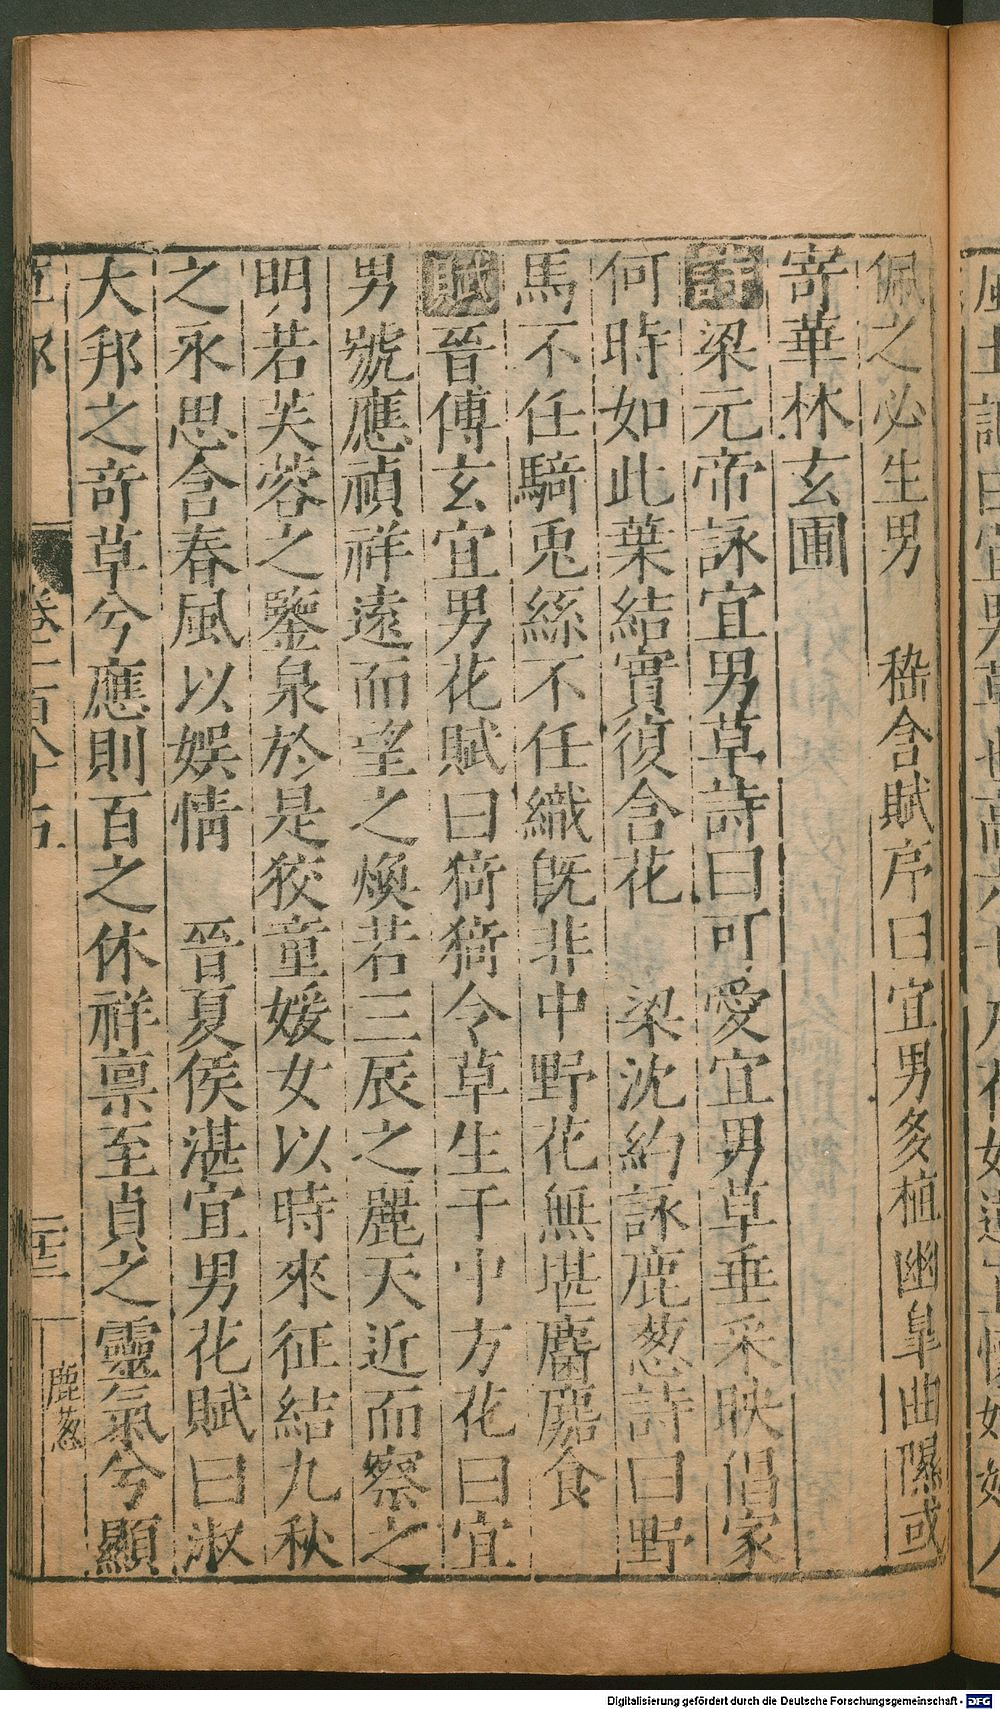 佩之必生男　嵇含賦序曰宜男多植幽皐曲隰或
寄華林玄圃
詩梁元帝詠宜男草詩曰可愛宜男草垂采映倡家
何時如此葉結實復含花　梁沈約詠鹿葱詩曰野
馬不任騎兎絲不任織旣非中野花無堪麏麚食
賦晉傅玄宜男花賦曰猗猗令草生于中方花曰宜
男號應禎祥遠而望之煥若三辰之麗天近而察之
明若芙蓉之鑒泉於是狡童媛女以時來征結九秋
之永思含春風以娱情　晉夏侯湛宜男花賦曰淑
大邦之竒草兮應則百之休祥禀至貞之靈氣兮顯
卷二百八十五
鹿葱
Digitalisierung gefördert durch die Deutsche Forschungsgemeinschaft - DFG